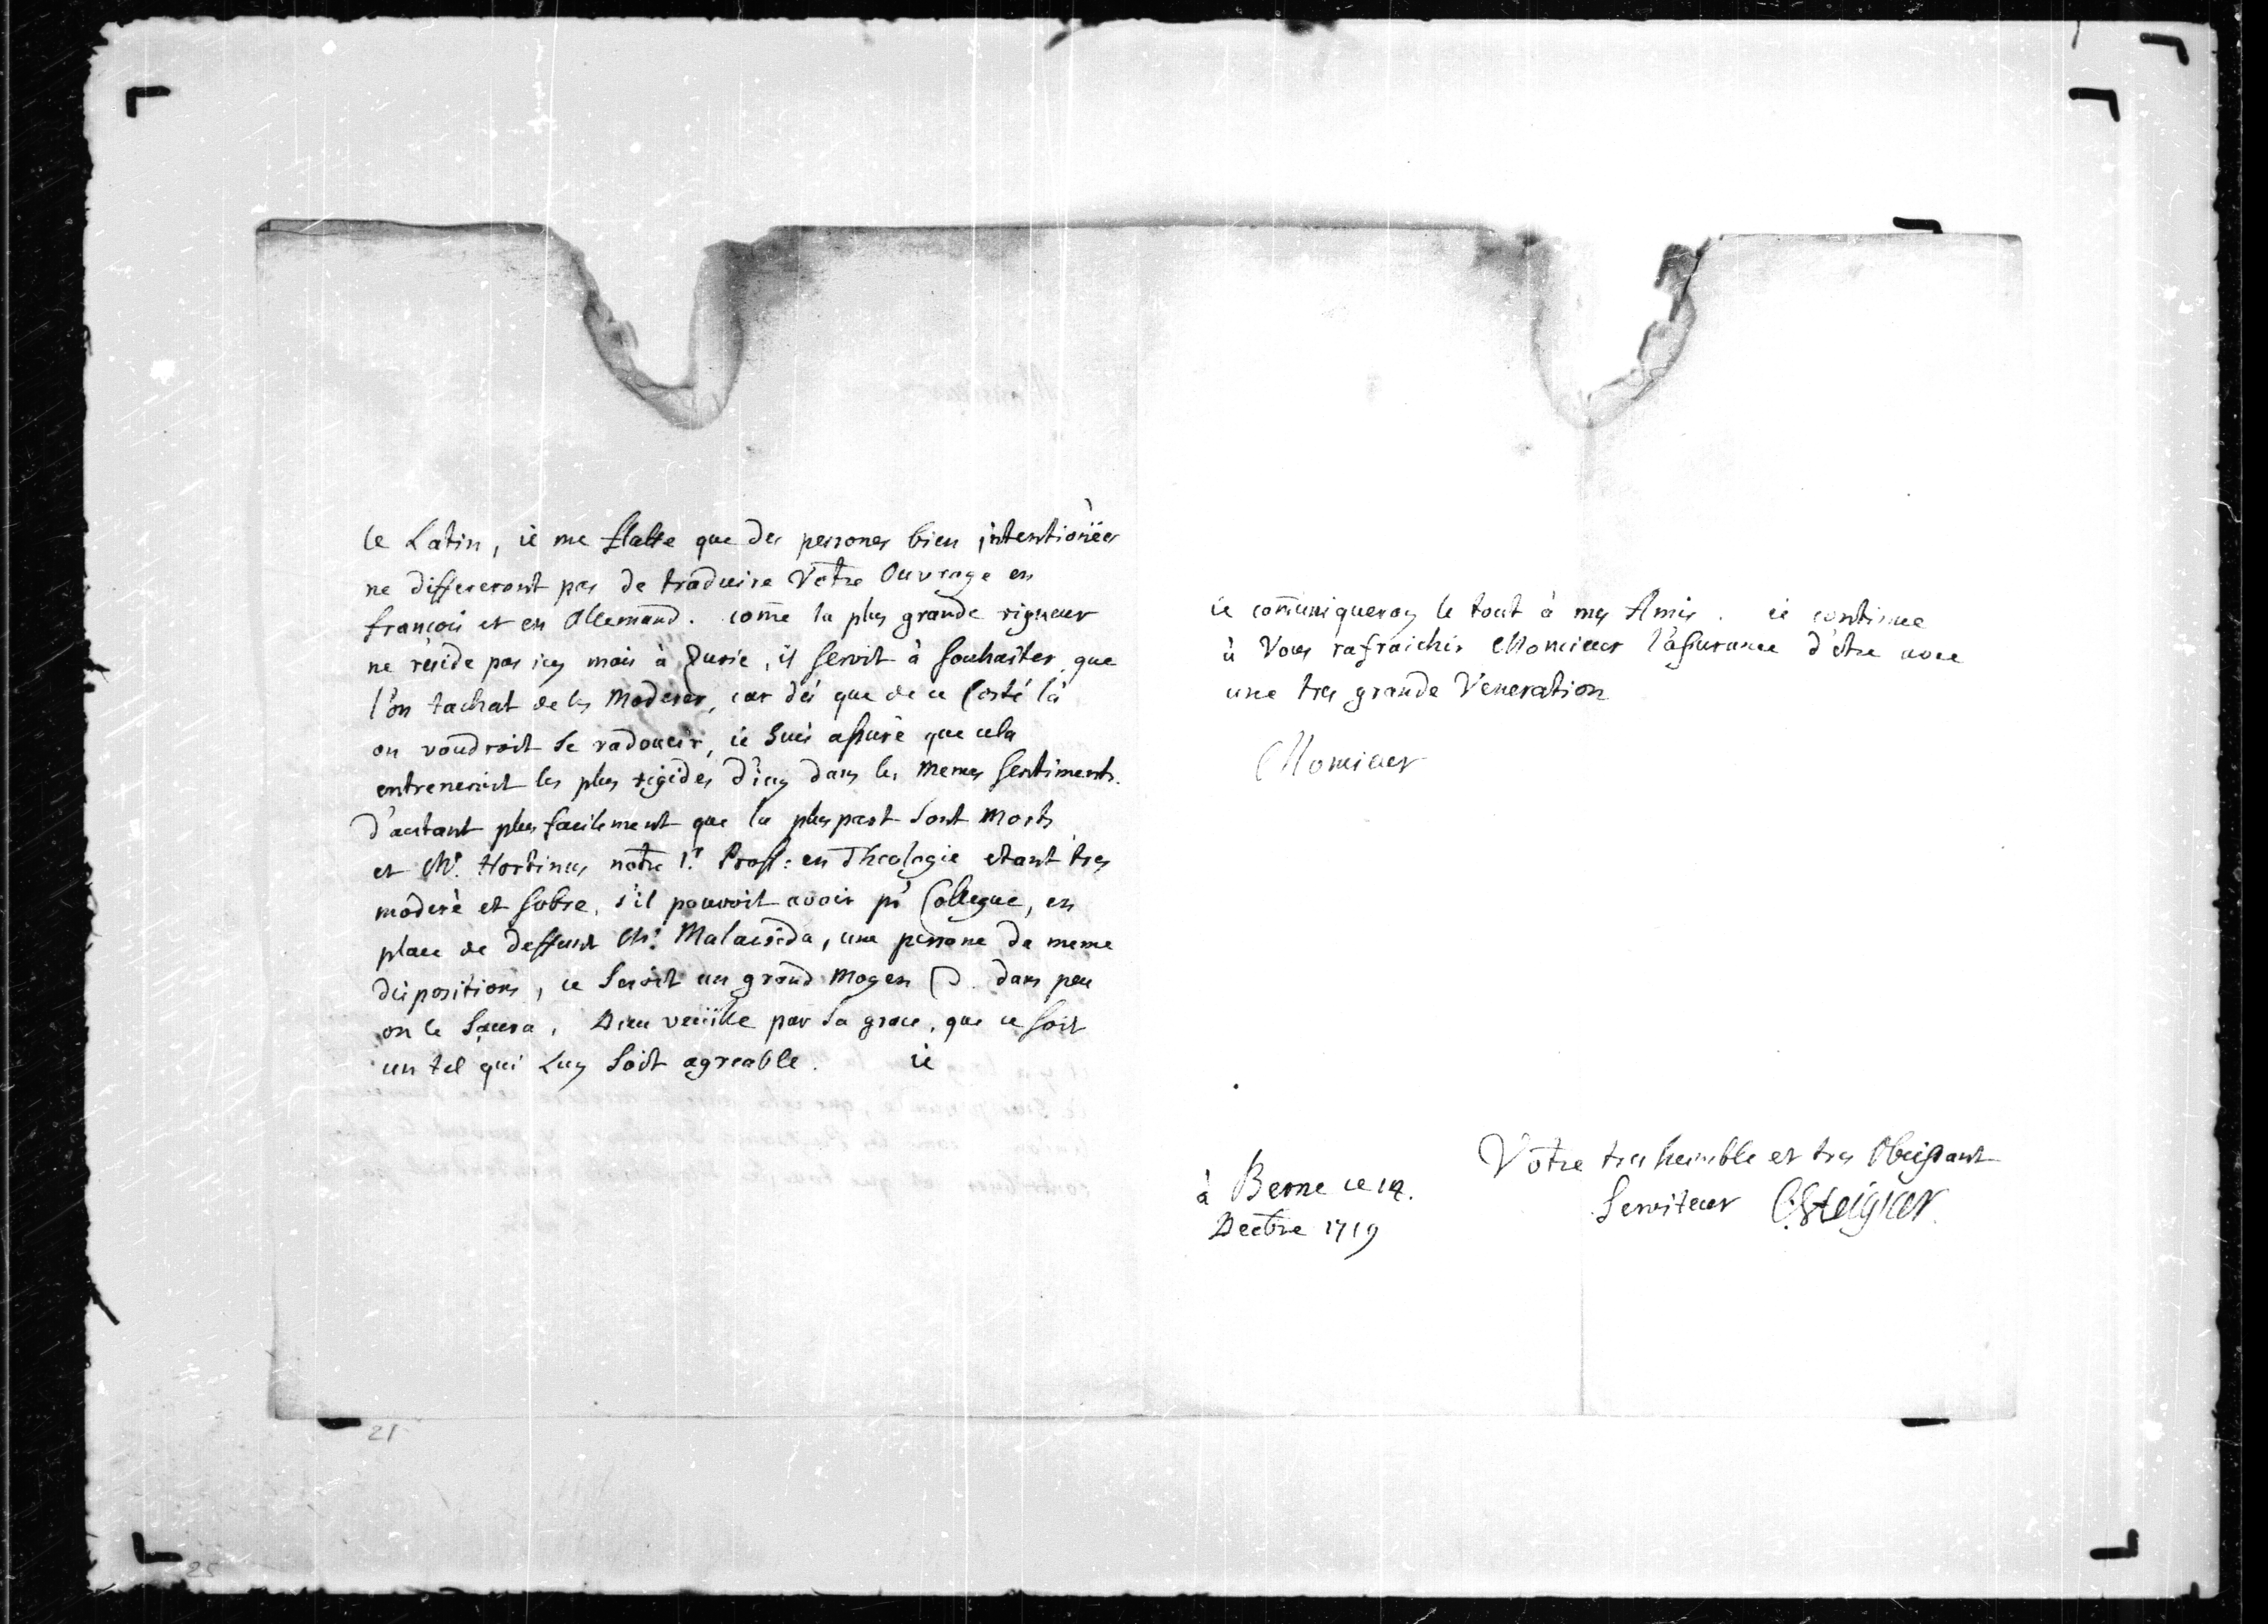 le Latin, ie me flatte que des persones bien intentionëes
ne differeront pas de traduire Votre Ouvrage en
francois et en Allemand. come la plus grande rigueur
ne reside pas icy mais à Zuric, il seroit à souhaiter que
l'on tachat de les Moderer, car dés que de ce Costé là
on voudroit se radoucir, ie Suis assuré que cela
entreneroit les plus rigides d'icy dans les memes sentiments.
d'autant plus facilement que la pluspart sont morts
et Mr. Hortinus notre 1r. Prof: en Theologie etant tres
moderé et sobre, s'il pouvoit avoir pr Collegue, en
place de deffunt Mr. Malacrida, une persone de meme
dispositions, ce seroit un grand Moyen dans peu
on le Saura, Dieu veüille par sa grace, que ce soit
un tel qui Luy soit agreable. ie
ie comuniqueray le tout à mes Amis. ie continue
à Vous rafraichir Monsieur l'assurance d'étre avec
une tres grande Veneration
Monsieur
Votre tres humble et tres Obeissant
Serviteur CSteiguer
à Berne ce 14.
Decbre 1719
21
25